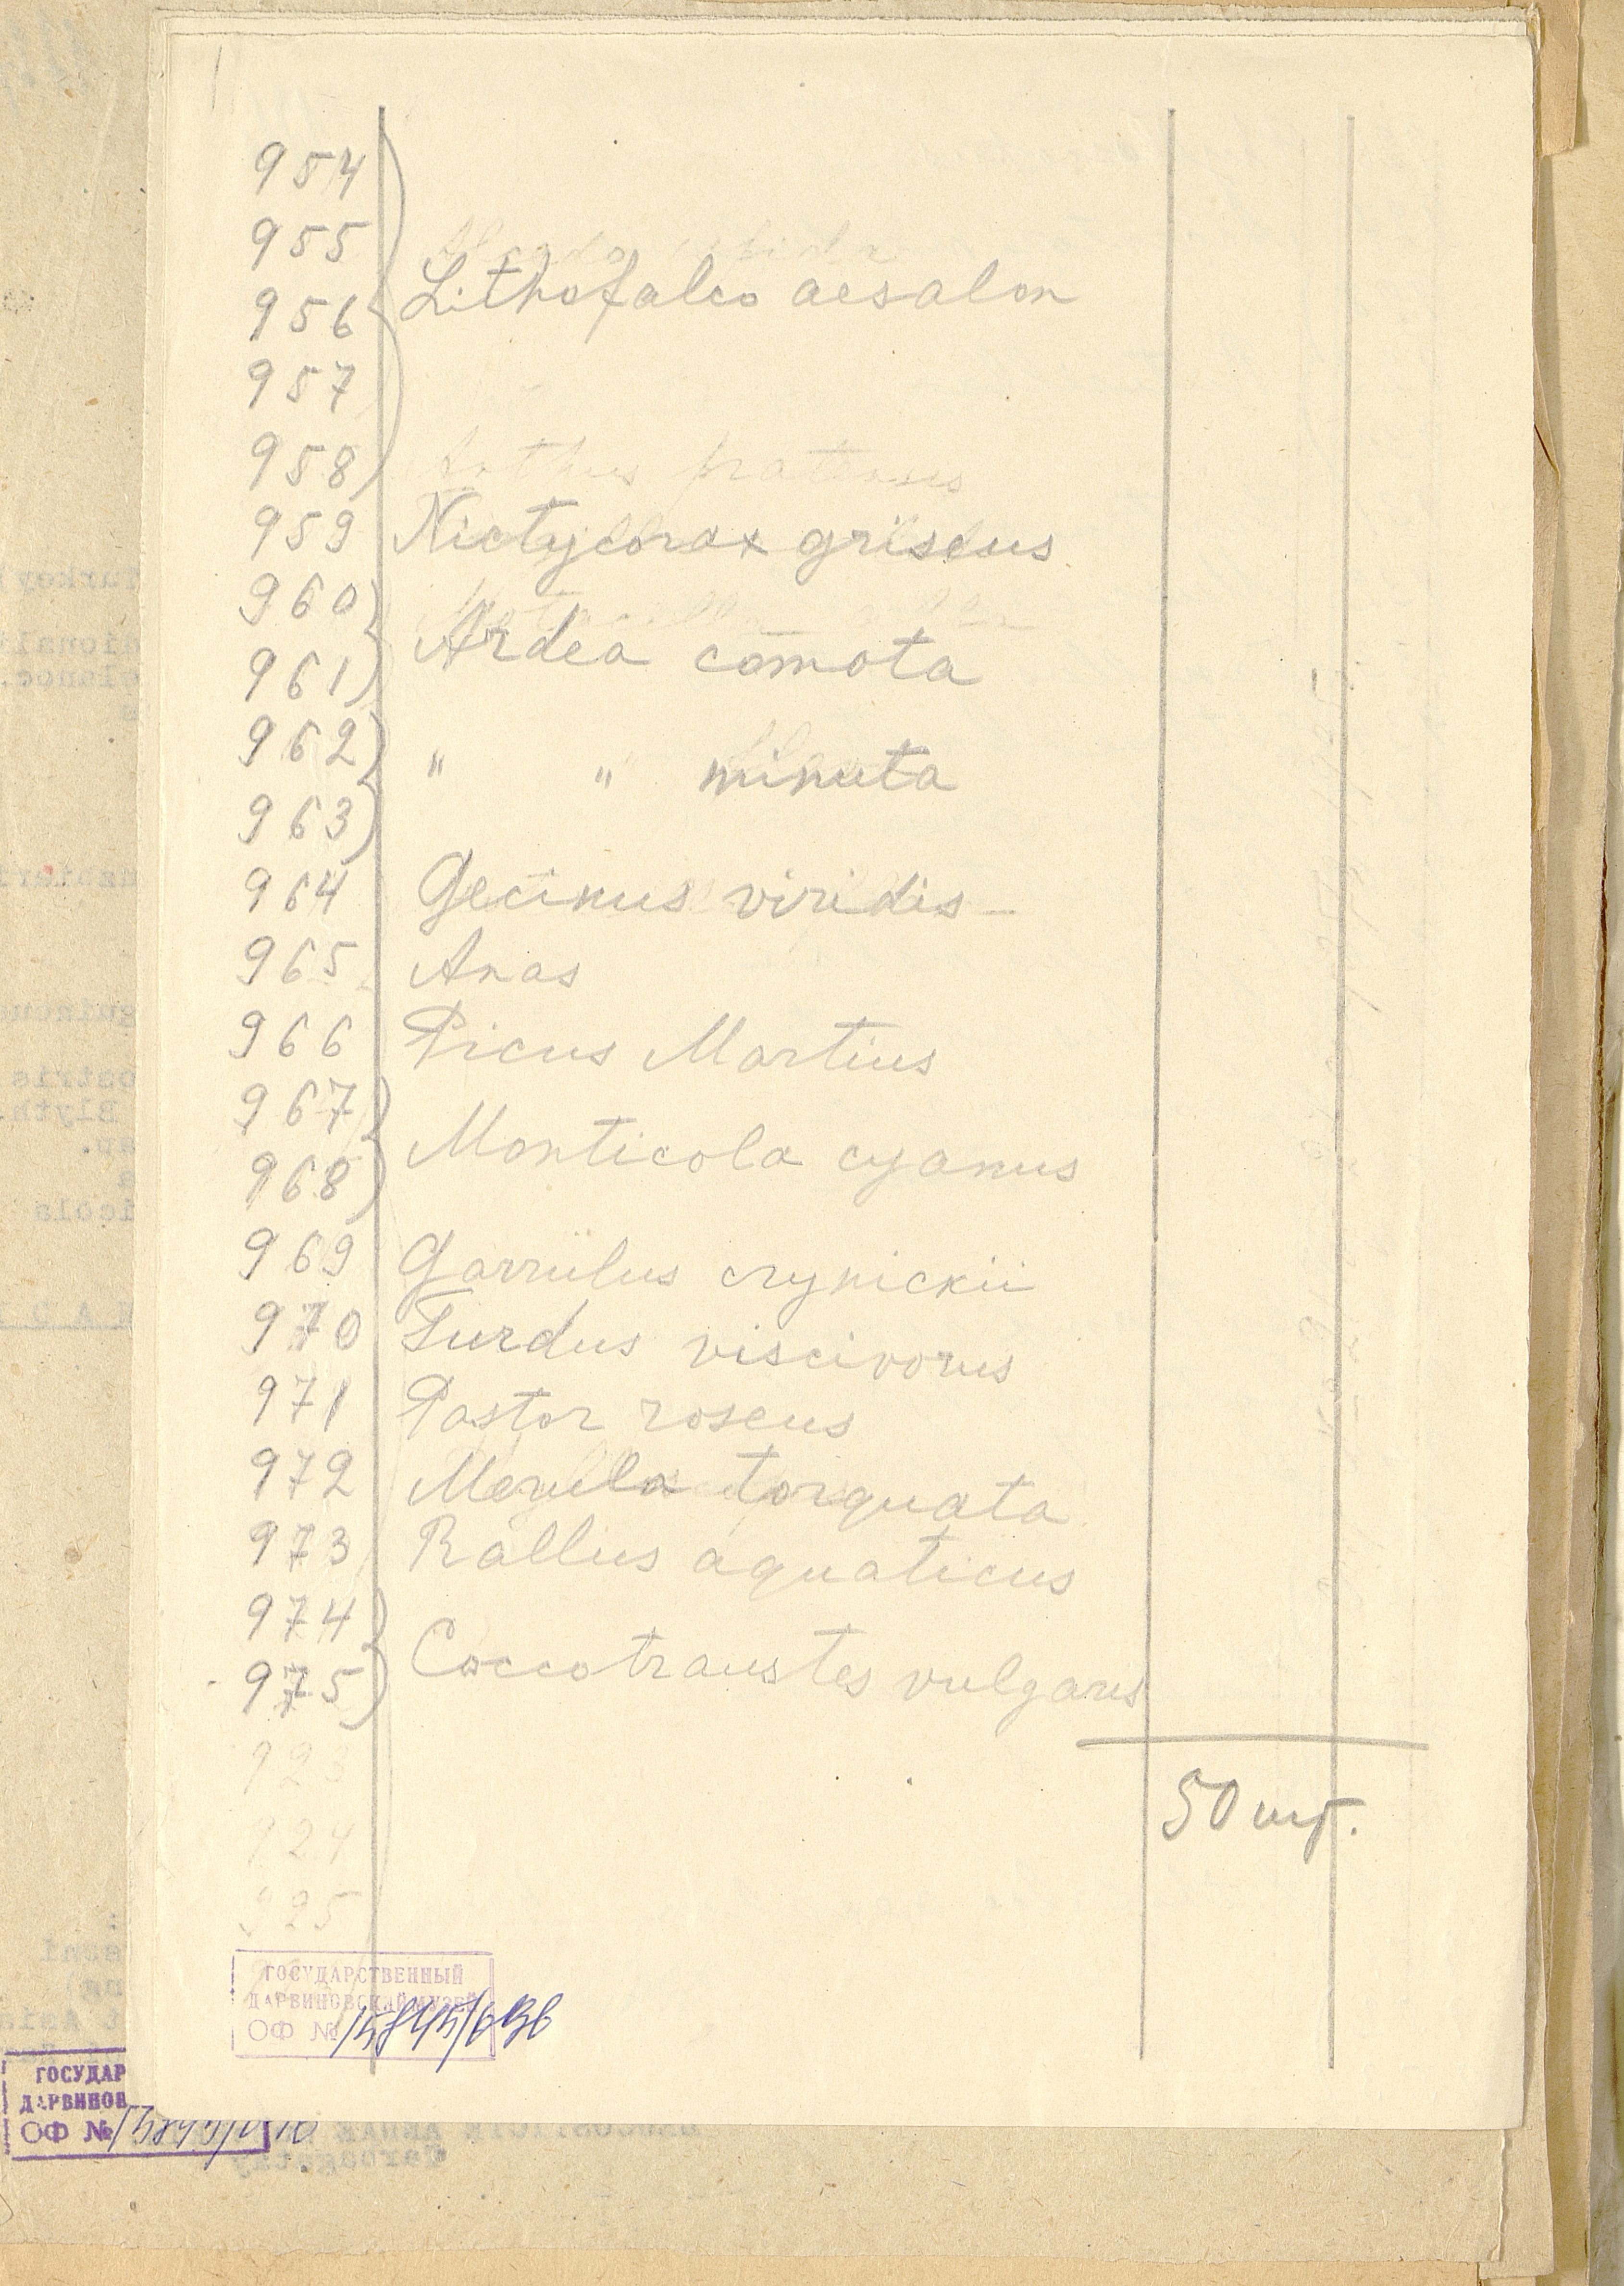 954
955
956 Lithofalco aesalon
957
958
959 Nictycorax griseus
960
961 Ardea comota
962 " " minuta
963
964 Gecinus viridis
965 Anas
966 Picus Martius
967
968 Monticola cyanus
969 Garrulus crynickii
970 Turdus viscivorus
971 Pastor roseus
972 Merula torquata
973 Rallus aquaticus
974
975 Coccotraustes vulgaris
923
924
925
50 шт.
ГОСУДАРСТВЕННЫЙ
ДАРВИНОВСКИЙ МУЗЕЙ
ОФ №
ГОСУДАР
ДАРВИНОВ
ОФ №